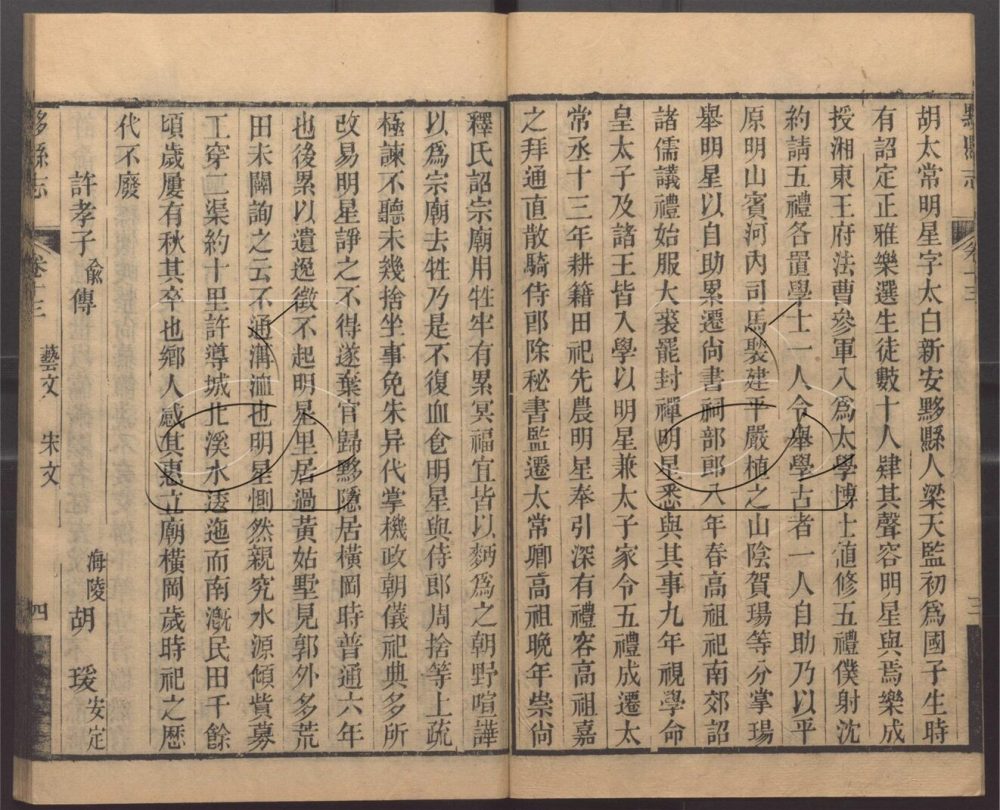 黟縣志
卷十三
三
胡太常明星字太白新安黟縣人梁天監初爲國子生時
有詔定正雅樂選生徒數十人肄其聲容明星與焉樂成
授湘東王府法曹參軍入爲太學博士値修五禮僕射沈
約請五禮各置學士一人令舉學古者一人自助乃以平
原明山賓河內司馬褧建平嚴植之山陰賀瑒等分掌瑒
舉明星以自助累遷尙書祠部郎八年春高祖祀南郊詔
諸儒議禮始服大裘罷封禪明星悉與其事九年視學命
皇太子及諸王皆入學以明星兼太子家令五禮成遷太
常丞十三年耕籍田祀先農明星奉引深有禮容高祖嘉
之拜通直散騎侍郎除秘書監遷太常卿高祖晚年崇尙
釋氏詔宗廟用牲牢有累冥福宜皆以麪爲之朝野喧譁
以爲宗廟去牲乃是不復血食明星與侍郎周捨等上疏
極諫不聽未幾捨坐事免朱异代掌機政朝儀祀典多所
改易明星諍之不得遂棄官歸黟隱居橫岡時普通六年
也後累以遺逸徵不起明星里居過黃姑墅見郭外多荒
田未闢詢之云不通溝洫也明星惻然親究水源傾貲募
工穿二渠約十里許導城北溪水逶迤而南漑民田千餘
頃歲屢有秋其卒也鄉人感其惠立廟橫岡歲時祀之歷
代不廢
許孝子俞傳
海陵胡瑗安定
黟縣志
卷十三
藝文
宋文
四